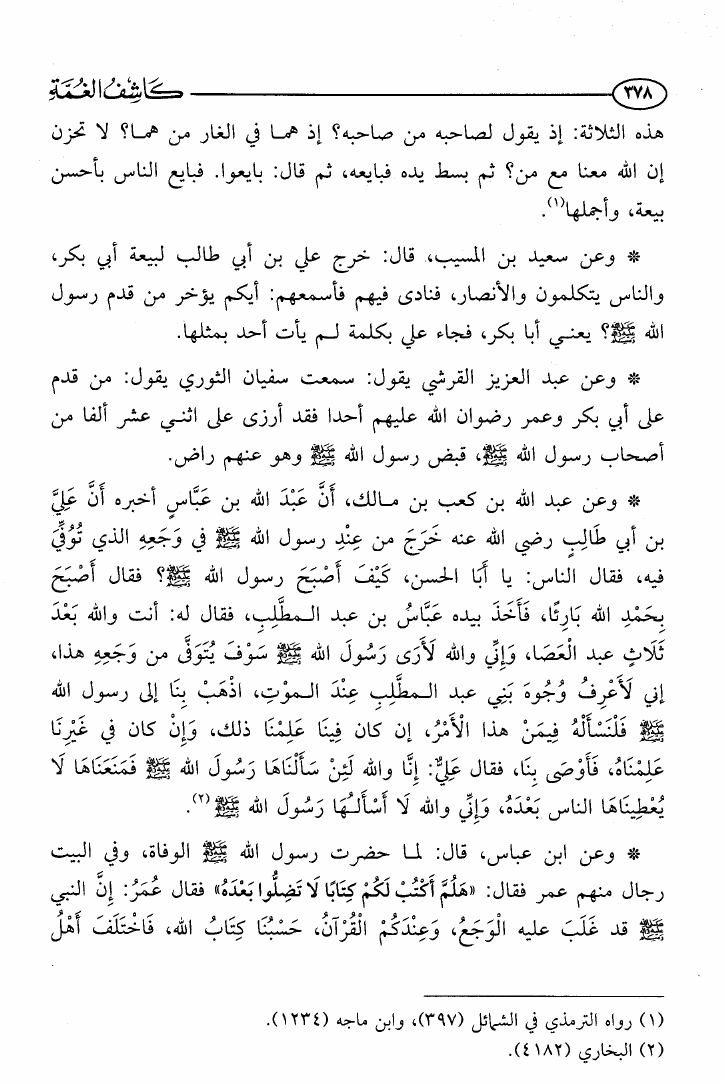 ٣٧٨
كَاشِفُ الغُمَّةِ
هذه الثلاثة: إذ يقول لصاحبه من صاحبه؟ إذ هما في الغار من هما؟ لا تحزن
إن الله معنا مع من؟ ثم بسط يده فبايعه، ثم قال: بايعوا. فبايع الناس بأحسن
بيعة، وأجملها(١).
* وعن سعيد بن المسيب، قال: خرج علي بن أبي طالب لبيعة أبي بكر،
والناس يتكلمون والأنصار، فنادى فيهم فأسمعهم: أيكم يؤخر من قدم رسول
الله ﷺ؟ يعني أبا بكر، فجاء علي بكلمة لم يأت أحد بمثلها.
* وعن عبد العزيز القرشي يقول: سمعت سفيان الثوري يقول: من قدم
على أبي بكر وعمر رضوان الله عليهم أحدا فقد أرزى على اثني عشر ألفا من
أصحاب رسول الله ﷺ، قبض رسول الله ﷺ وهو عنهم راض.
* وعن عبد الله بن كعب بن مالك، أَنَّ عَبْدَ الله بن عَبَّاسٍ أخبره أَنَّ عَلِيَّ
بن أبي طَالِبٍ رضي الله عنه خَرَجَ من عِنْدِ رسول الله ﷺ في وَجَعِهِ الذي تُوُفِّيَ
فيه، فقال الناس: يا أَبَا الحسن، كَيْفَ أَصْبَحَ رسول الله ﷺ؟ فقال أَصْبَحَ
بِحَمْدِ الله بَارِئًا، فَأَخَذَ بيده عَبَّاسُ بن عبد المطَّلِبِ، فقال له: أنت والله بَعْدَ
ثَلَاثٍ عبد الْعَصَا، وَإِنِّي والله لَأَرَى رَسُولَ الله ﷺ سَوْفَ يُتَوَفَّى من وَجَعِهِ هذا،
إني لَأَعْرِفُ وُجُوهَ بَنِي عبد المطَّلِبِ عِنْدَ الموْتِ، اذْهَبْ بِنَا إلى رسول الله
ﷺ فَلْنَسْأَلْهُ فِيمَنْ هذا الْأَمْرُ، إن كان فِينَا عَلِمْنَا ذلك، وَإِنْ كان في غَيْرِنَا
عَلِمْنَاهُ، فَأَوْصَى بِنَا، فقال عَلِيٌّ: إِنَّا والله لَئِنْ سَأَلْنَاهَا رَسُولَ الله ﷺ فَمَنَعَنَاهَا لَا
يُعْطِينَاهَا الناس بَعْدَهُ، وَإِنِّي والله لَا أَسْأَلُهَا رَسُولَ الله ﷺ(٢).
* وعن ابن عباس، قال: لما حضرت رسول الله ﷺ الوفاة، وفي البيت
رجال منهم عمر فقال: «هَلُمَّ أَكْتُبْ لَكُمْ كِتَابًا لَا تَضِلُّوا بَعْدَهُ» فقال عُمَرُ: إِنَّ النبي
ﷺ قد غَلَبَ عليه الْوَجَعُ، وَعِنْدَكُمْ الْقُرْآنُ، حَسْبُنَا كِتَابُ الله، فَاخْتَلَفَ أَهْلُ
(١) رواه الترمذي في الشمائل (٣٩٧)، وابن ماجه (١٢٣٤).
(٢) البخاري (٤١٨٢).